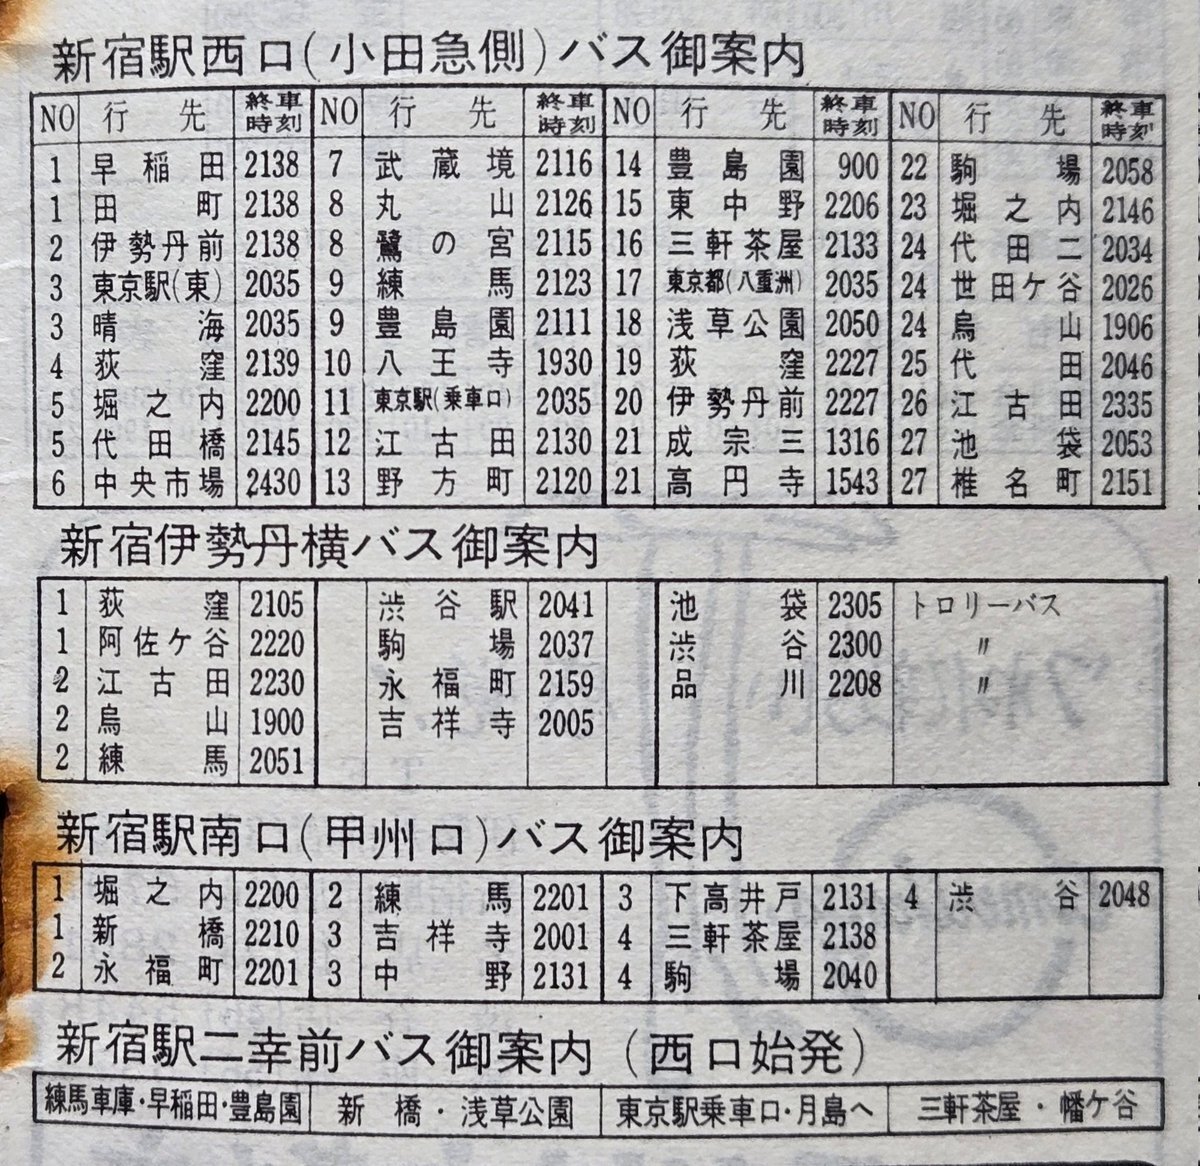 新宿駅西口(小田急側)バス御案内
NO 行先 終車時刻 NO 行先 終車時刻 NO 行先 終車時刻 NO 行先 終車時刻
1 早稲田 2138 7 武蔵境 2116 14 豊島園 900 22 駒場 2058
1 田町 2138 8 丸山 2126 15 東中野 2206 23 堀之内 2146
2 伊勢丹前 2138 8 鷺の宮 2115 16 三軒茶屋 2133 24 代田二 2034
3 東京駅(東) 2035 9 練馬 2123 17 東京都(八重洲) 2035 24 世田ケ谷 2026
3 晴海 2035 9 豊島園 2111 18 浅草公園 2050 24 烏山 1906
4 荻窪 2139 10 八王寺 1930 19 荻窪 2227 25 代田 2046
5 堀之内 2200 11 東京駅(乗車口) 2035 20 伊勢丹前 2227 26 江古田 2335
5 代田橋 2145 12 江古田 2130 21 成宗三 1316 27 池袋 2053
6 中央市場 2430 13 野方町 2120 21 高円寺 1543 27 椎名町 2151
新宿伊勢丹横バス御案内
1 荻窪 2105 渋谷駅 2041 池袋 2305 トロリーバス
1 阿佐ケ谷 2220 駒場 2037 渋谷 2300 〃
2 江古田 2230 永福町 2159 品川 2208 〃
2 烏山 1900 吉祥寺 2005
2 練馬 2051
新宿駅南口(甲州口)バス御案内
1 堀之内 2200 2 練馬 2201 3 下高井戸 2131 4 渋谷 2048
1 新橋 2210 3 吉祥寺 2001 4 三軒茶屋 2138
2 永福町 2201 3 中野 2131 4 駒場 2040
新宿駅二幸前バス御案内(西口始発)
練馬車庫・早稲田・豊島園 新橋・浅草公園 東京駅乗車口・月島へ 三軒茶屋・幡ケ谷